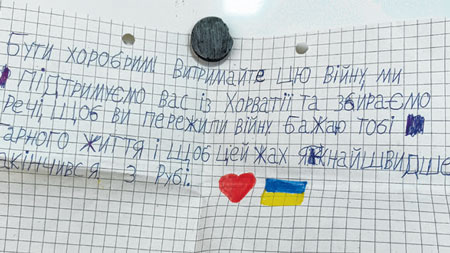 Бути хоробримі витримайте цю війну ми
підтримуємо вас із Хорватії та збираємо
речі щоб ви пережили війну бажаю тобі
гарного життя і щоб цей жах якнайшвидше
закінчився з Рубі.